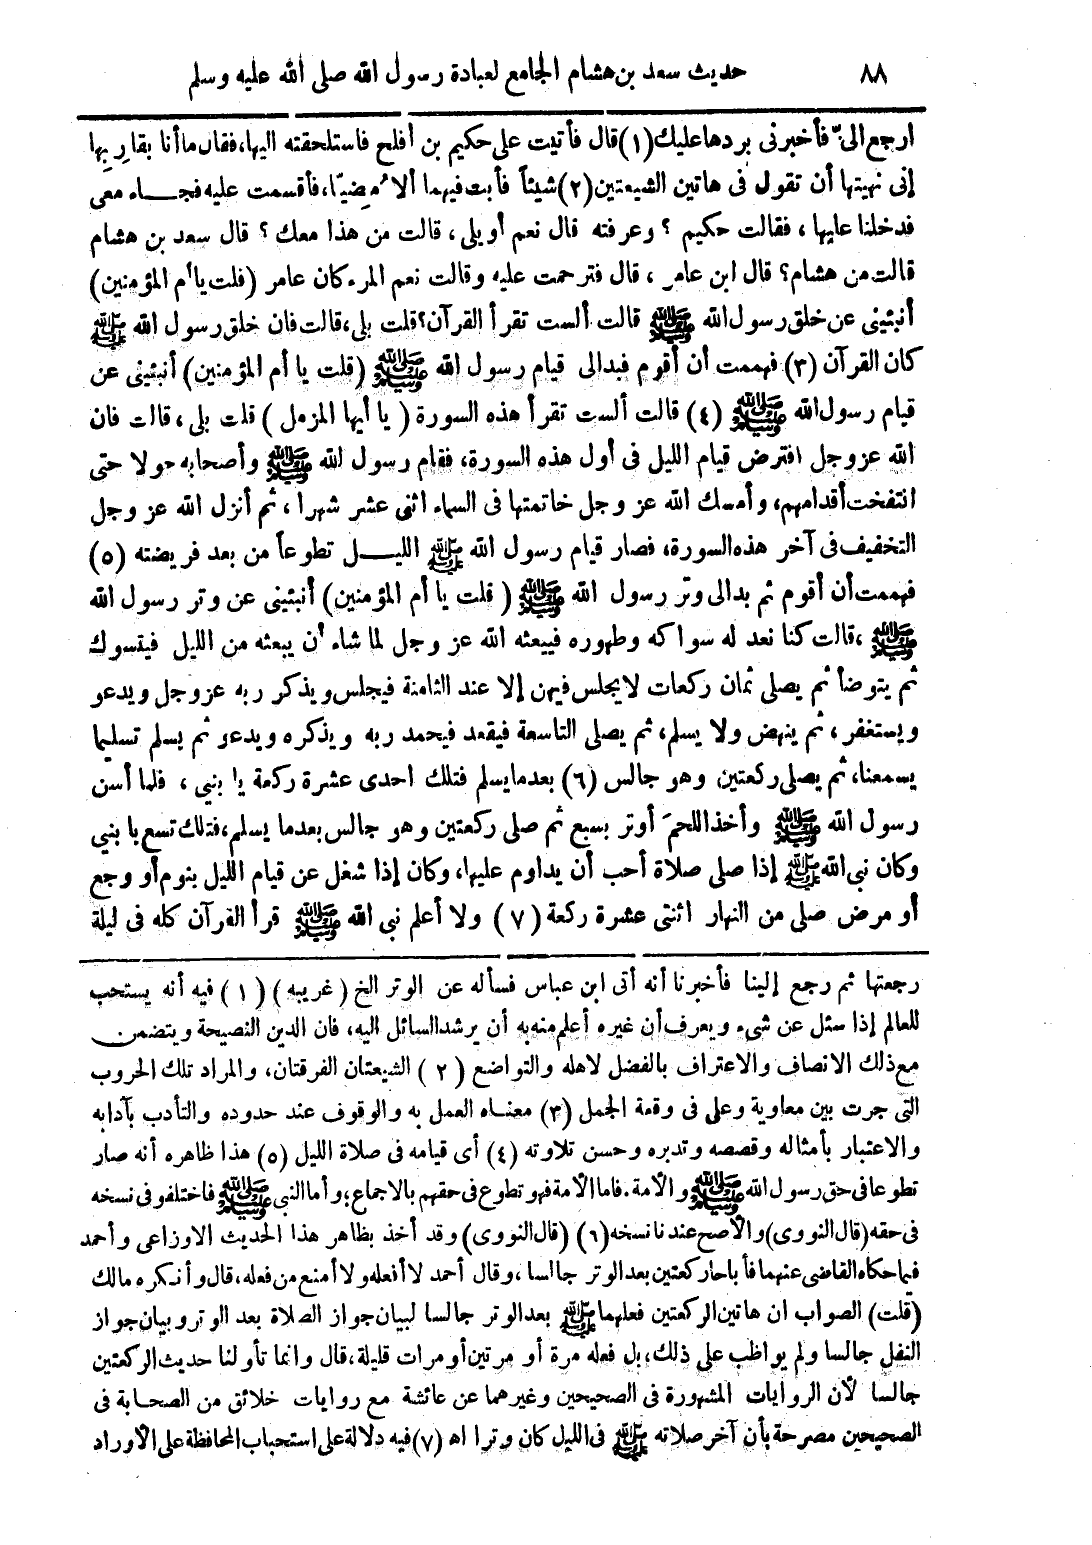 ٨٨ حديث سعد بن هشام الجامع لعبادة رسول الله صلى الله عليه وسلم
ارجع الىّ فأخبرنى بردها عليك (١) قال فأتيت على حكيم بن أفلح فاستلحقته اليها، فقال ما أنا بقاربها
إنى نهيتها أن تقول فى هاتين الشيعتين (٢) شيئاً فأبت فيهما ألا مُضيّا، فأقسمت عليه فجـاء معى
فدخلنا عليها ، فقالت حكيم ؟ وعرفته قال نعم أو بلى، قالت من هذا معك ؟ قال سعد بن هشام
قالت من هشام؟ قال ابن عامر ، قال فترحمت عليه وقالت نعم المرء كان عامر (قلت يا أم المؤمنين)
أنبئينى عن خلق رسول الله ﷺ قالت ألست تقرأ القرآن؟ قلت بلى، قالت فان خلق رسول الله ﷺ
كان القرآن (٣) فهممت أن أقوم فبدالى قيام رسول الله ﷺ (قلت يا أم المؤمنين) أنبئينى عن
قيام رسول الله ﷺ (٤) قالت ألست تقرأ هذه السورة ( يا أيها المزمل ) قلت بلى ، قالت فان
الله عز وجل افترض قيام الليل فى أول هذه السورة، فقام رسول الله ﷺ وأصحابه حولا حتى
انتفخت أقدامهم، وأمسك الله عز وجل خاتمتها فى السماء اثنى عشر شهرا ، ثم أنزل الله عز وجل
التخفيف فى آخر هذه السورة، فصار قيام رسول الله ﷺ الليـل تطوعاً من بعد فريضته (٥)
فهممت أن أقوم ثم بدالى وتر رسول الله ﷺ ( قلت يا أم المؤمنين) أنبئينى عن وتر رسول الله
ﷺ ، قالت كنا نعد له سواكه وطهوره فيبعثه الله عز وجل لما شاء أن يبعثه من الليل فيتسوك
ثم يتوضأ ثم يصلى ثمان ركعات لا يجلس فيهن إلا عند الثامنة فيجلس ويذكر ربه عز وجل ويدعو
ويستغفر ، ثم ينهض ولا يسلم، ثم يصلى التاسعة فيقعد فيحمد ربه ويذكره ويدعو ثم يسلم تسليما
يسمعنا، ثم يصلى ركعتين وهو جالس (٦) بعد ما يسلم فتلك احدى عشرة ركعة يا بنى ، فلما أسن
رسول الله ﷺ وأخذ اللحمَ أوتر بسبع ثم صلى ركعتين وهو جالس بعدما يسلم، فتلك تسع يا بني
وكان نبى الله ﷺ إذا صلى صلاة أحب أن يداوم عليها، وكان إذا شغل عن قيام الليل بنوم أو وجع
أو مرض صلى من النهار اثنتى عشرة ركعة (٧) ولا أعلم نبي الله ﷺ قرأ القرآن كله فى ليلة
رجعتها ثم رجع إلينا فأخبرنا أنه أتى ابن عباس فسأله عن الوتر الخ ( غريبه ) ( ١ ) فيه أنه يستحب
للعالم إذا سئل عن شىء ويعرف أن غيره أعلم منه به أن يرشد السائل اليه، فان الدين النصيحة ويتضمن
مع ذلك الانصاف والاعتراف بالفضل لاهله والتواضع ( ٢ ) الشيعتان الفرقتان، والمراد تلك الحروب
التى جرت بين معاوية وعلى فى وقعة الجمل (٣) معناه العمل به والوقوف عند حدوده والتأدب بآدابه
والاعتبار بأمثاله وقصصه وتدبره وحسن تلاوته (٤) أى قيامه فى صلاة الليل (٥) هذا ظاهره أنه صار
تطوعا فى حق رسول الله ﷺ والأمة. فاما الأمة فهو تطوع فى حقهم بالاجماع؛ وأما النبى ﷺ فاختلفو فى نسخه
فى حقه (قال النووى) والأصح عندنا نسخه (٦) (قال النووى) وقد أخذ بظاهر هذا الحديث الاوزاعى وأحمد
فيما حكاه القاضى عنهما فأباحا ركعتين بعد الوتر جالسا ، وقال أحمد لا أفعله ولا أمنع من فعله، قال وأنكره مالك
(قلت) الصواب ان هاتين الركعتين فعلهما ﷺ بعد الوتر جالسا لبيان جواز الصلاة بعد الوتر وبيان جواز
النفل جالسا ولم يواظب على ذلك، بل فعله مرة أو مرتين أو مرات قليلة، قال وانما تأولنا حديث الركعتين
جالسا لأن الروايات المشهورة فى الصحيحين وغيرهما عن عائشة مع روايات خلائق من الصحـابة فى
الصحيحين مصرحة بأن آخر صلاته ﷺ فى الليل كان وترا اه (٧) فيه دلالة على استحباب المحافظة على الأوراد